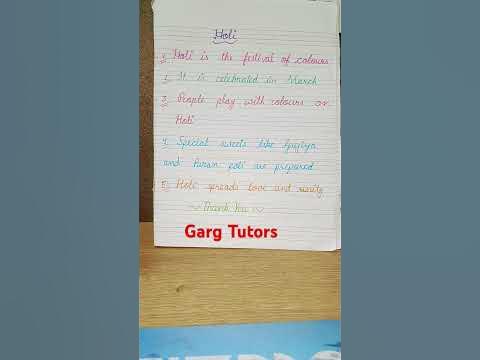 Holi
1. Holi is the festival of colours
2. It is celebrated in March
3. People play with colours on
Holi
4. Special sweets like Gujiya
and Puran poli are prepared
5. Holi spreads love and unity
Thank You
Garg Tutors